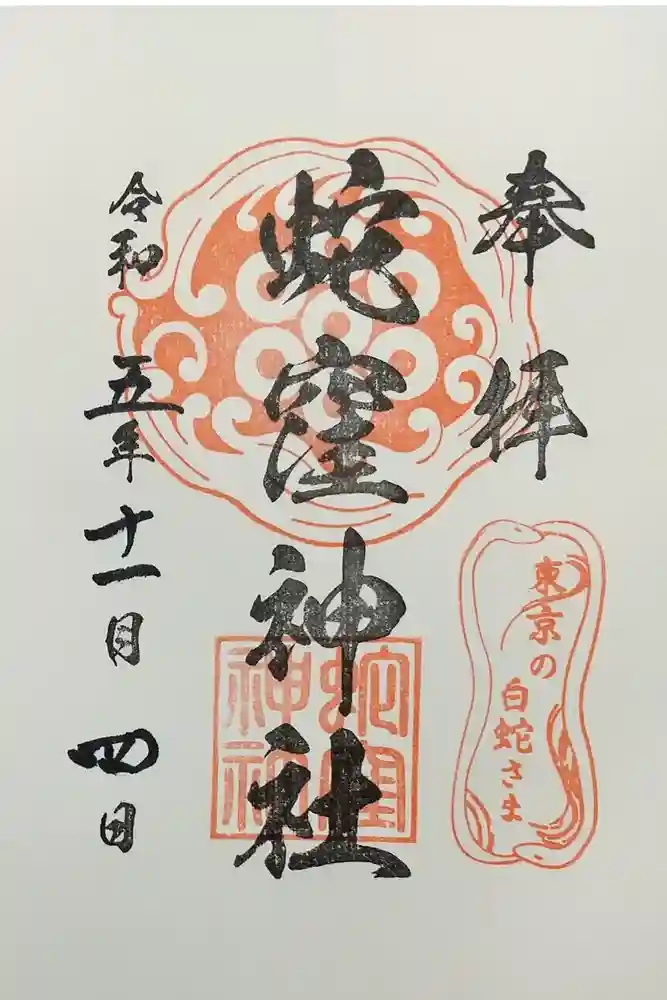 奉拝
蛇窪神社
令和五年十一月四日
東京の
白蛇さま